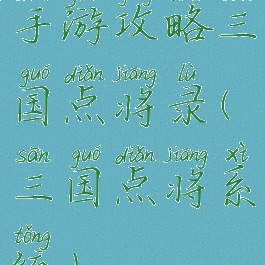 手游攻略三
guó diǎn jiàng lù
国点将录(
sān guó diǎn jiàng xì
三国点将系
tǒng
统)